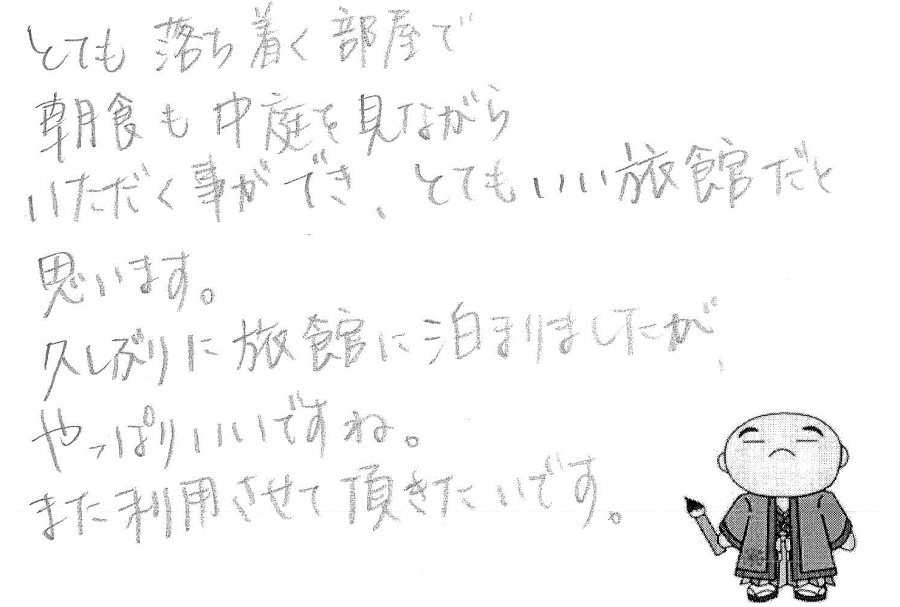 とても落ち着く部屋で
朝食も中庭を見ながら
いただく事ができ、とてもいい旅館だと
思います。
久しぶりに旅館に泊まりましたが、
やっぱりいいですね。
また利用させて頂きたいです。